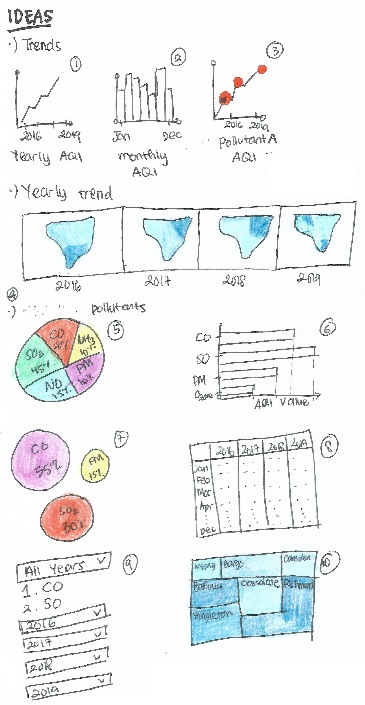 IDEAS
·) Trends
1
2016 2019
Yearly AQI
2
Jan Dec
monthly
AQI
3
2016 2019
pollutant A
AQI
·) Yearly trend
2016 2017 2018 2019
4
·) pollutants
5
CO
NH3
10%
SO2
45%
PM
10%
NO
15%
6
CO
SO
PM
Ozone
AQI Value
7
CO
55%
PM
15%
SO2
30%
8
2016 2017 2018 2019
Jan
Feb
Mar
Apr
Dec
9
All Years
1. CO
2. SO
2016
2017
2018
2019
10
Wyong
Camden
Singleton
Richmond